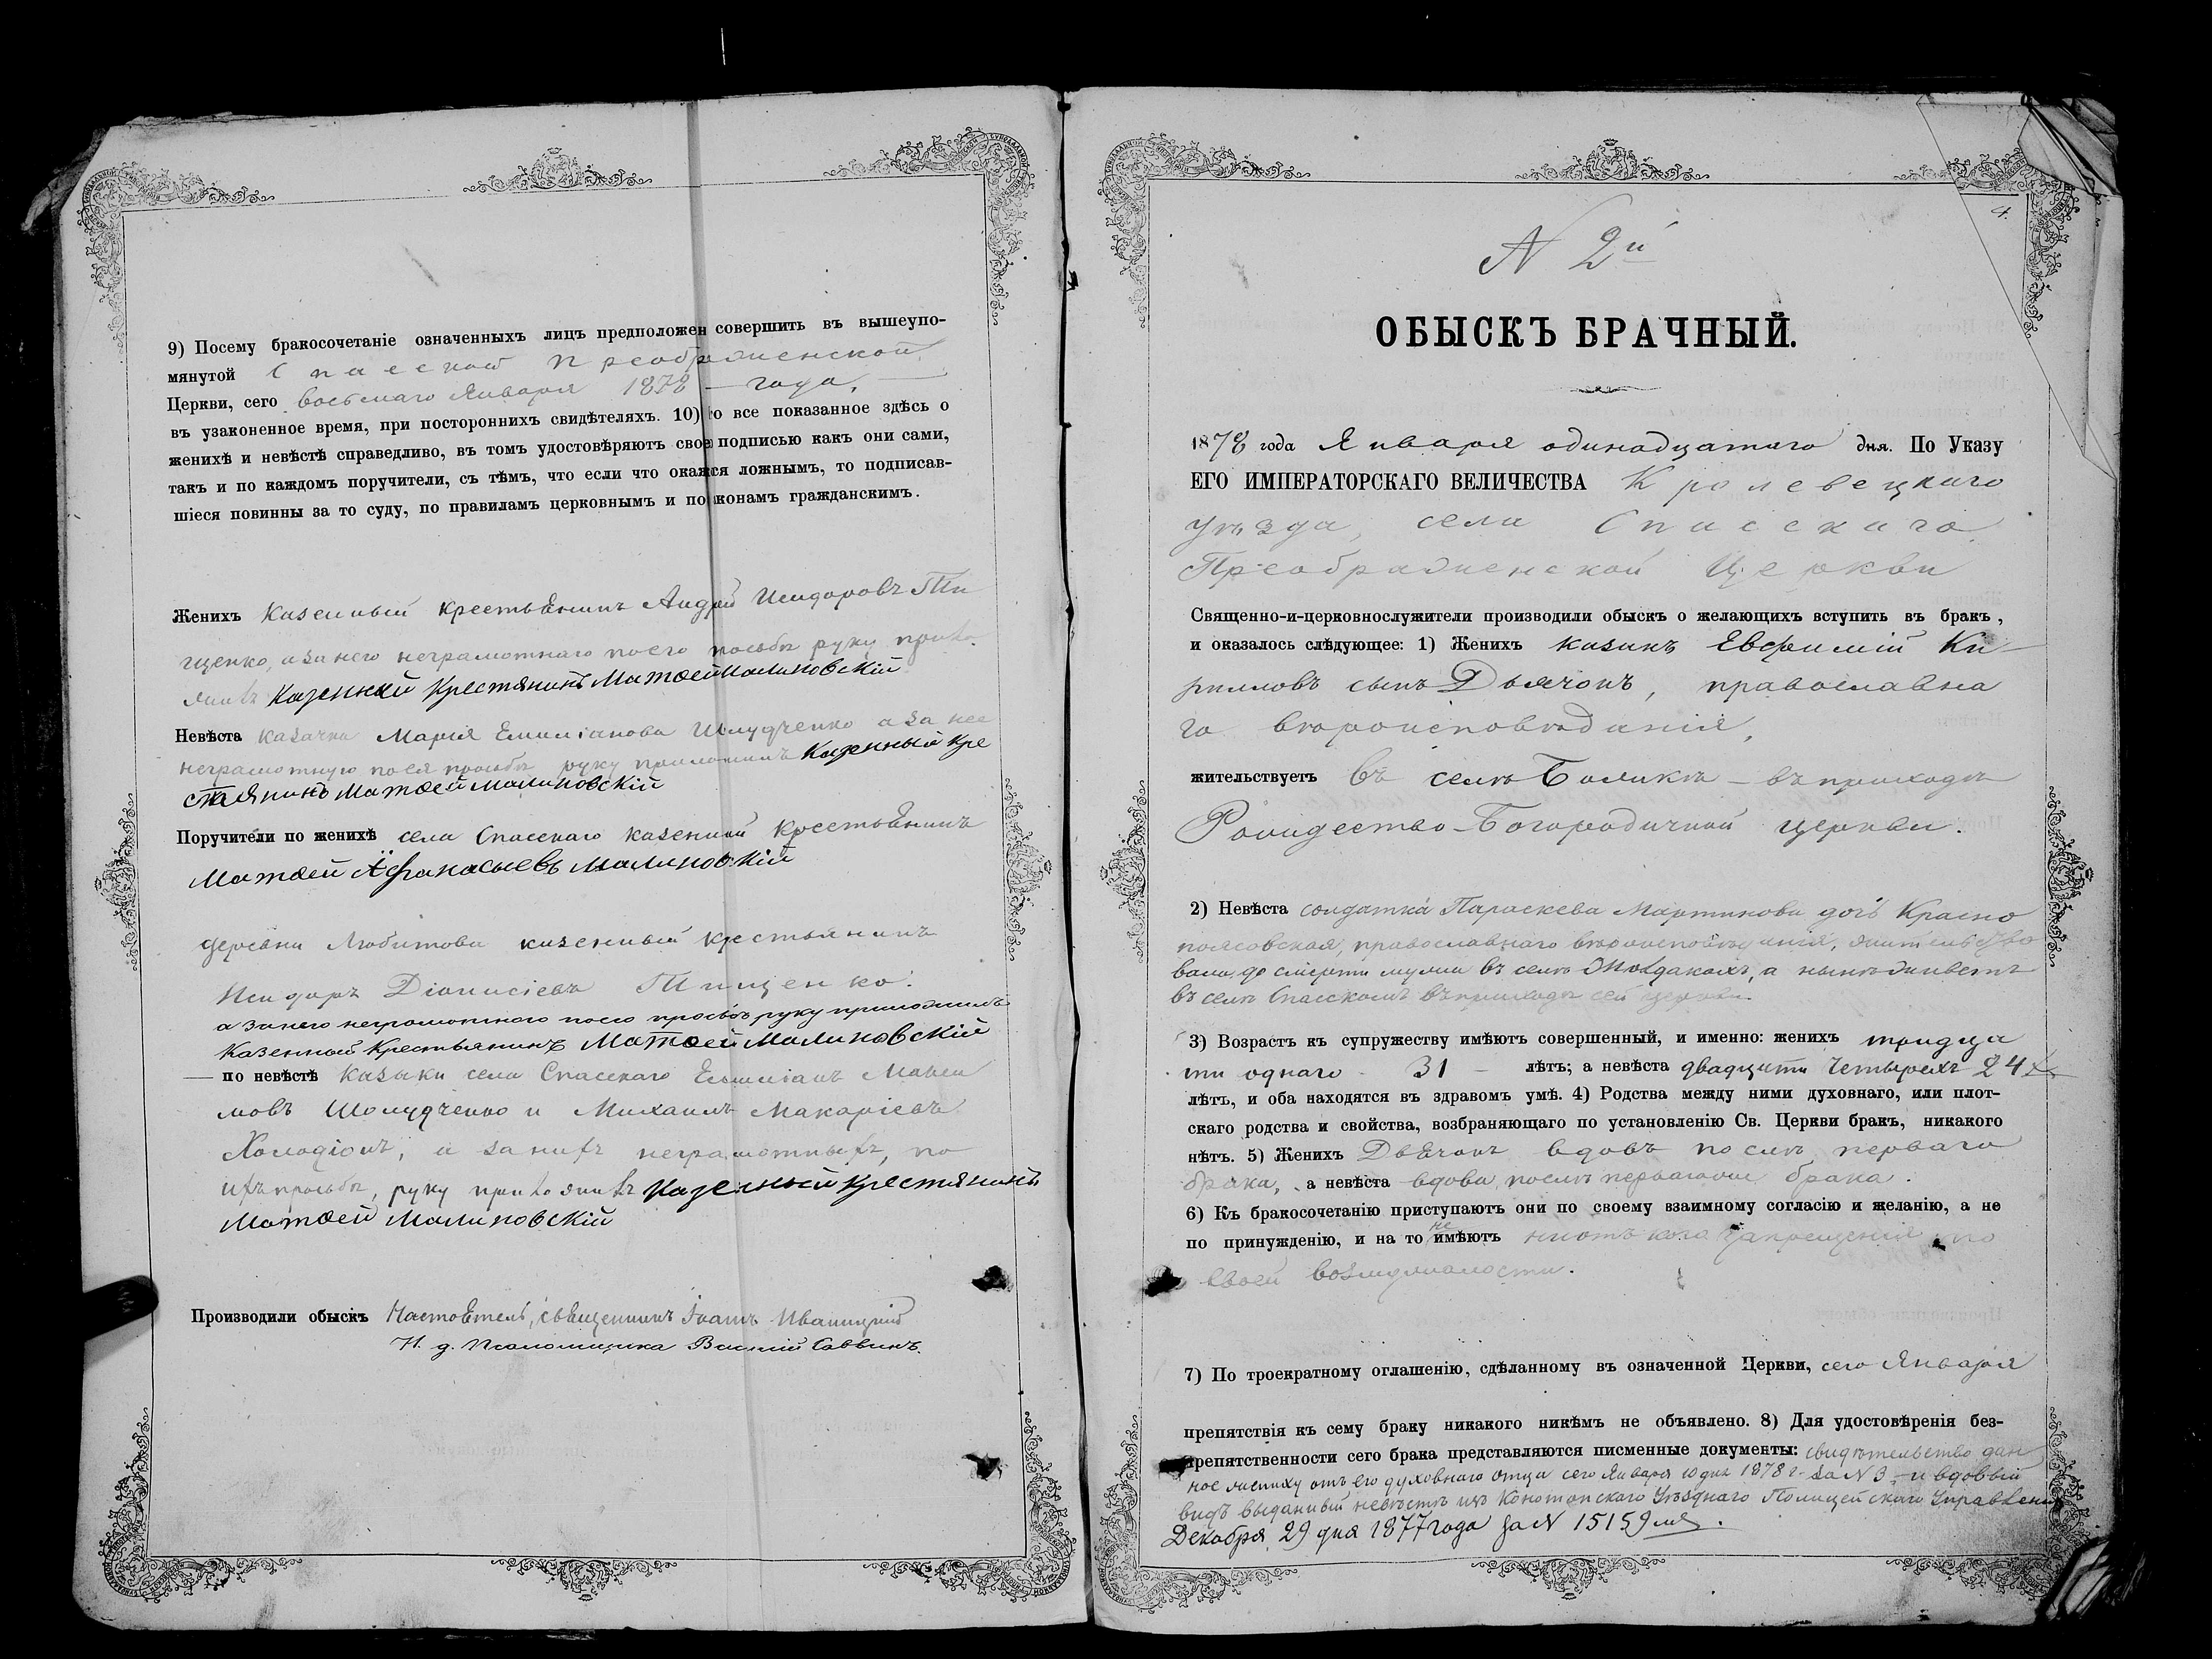 9) Посему бракосочетаніе означенныхъ лицъ предположен совершить въ вышеупо-
мянутой Спасской Преображенской
Церкви, сего восьмаго Января 1878 – года. –
въ узаконенное время, при постороннихъ свидѣтеляхъ. 10) то все показанное здѣсь о
женихѣ и невѣстѣ справедливо, въ томъ удостовѣряютъ свое подписью какъ они сами,
такъ и по каждомъ поручители, съ тѣмъ, что если что окажся ложнымъ, то подписав-
шіеся повинны за то суду, по правиламъ церковнымъ и по конамъ гражданскимъ.
Женихъ казенный крестьянинъ Андрей Исидоровъ Ти
щенко, а за него неграмотнаго по его прозьбѣ руку прило-
жилъ Казенный Крестянинъ Матѳей Малиновскій
Невѣста казачка Марія Емиліанова Шолудченко а за нее
неграмотную по ея прозьбѣ руку приложилъ Казенный Кре
стянинъ Матѳей Малиновскій
Поручители по женихѣ села Спасскаго казенный крестьянинъ
Матѳей Афанасьевъ Малиновскій
деревни Любитова казенный крестьянинъ
Исидоръ Діонисіевъ Тищенко.
а за него неграмотного по его прозьбѣ руку приложилъ
Казенный Крестьянинъ Матѳей Малиновскій
по невѣстѣ казаки села Спасскаго Емиліанъ
Шолудченко и Михаилъ Макаріевъ
Холодіонъ, а за нихъ неграмотныхъ, по
ихъ прозьбѣ, руку приложилъ Казенный Крестянинъ
Матѳей Малиновскій
Производили обыскъ Настоятель, священникъ Іоаннъ Иваницкій
И. д. Псаломщика Василій Саввинъ.
4.
N 2й
ОБЫСКЪ БРАЧНЫЙ.
1878 года Января одинадцатаго дня. По Указу
ЕГО ИМПЕРАТОРСКАГО ВЕЛИЧЕСТВА Кролевецкаго
уѣзда, села Спасскаго
Преображенской Церкви
Священно-и-церковнослужители производили обыскъ о желающихъ вступить въ бракъ,
и оказалось слѣдующее: 1) Женихъ казакъ Евфимій Ки-
рилловъ сынъ Дьячонъ, православна
го вѣроисповѣданія,
жительствуетъ въ селѣ – въ приходѣ
Рождество-Богородичной церкви.
2) Невѣста солдатка Параскева Мартинова дочь Красно
поясовская, православнаго вѣроисповѣданія, жительство
вала до смерти мужа въ селѣ а нынѣ живетъ
въ селѣ Спасскомъ въ приходѣ сей церкви.
3) Возрастъ къ супружеству имѣютъ совершенный, и именно: женихъ тридца
ти одного - 31 – лѣтъ; а невѣста двадцати четырехъ 24
лѣтъ, и оба находятся въ здравомъ умѣ. 4) Родства между ними духовнаго, или плот-
скаго родства и свойства, возбраняющаго по установленію Св. Церкви бракъ, никакого
нѣтъ. 5) Женихъ Дьячонъ вдовъ послѣ перваго
брака, а невѣста вдова, послѣ перваго брака.
6) Къ бракосочетанію приступаютъ они по своему взаимному согласію и желанію, а не
по принужденію, и на то не имѣютъ ни отъ кого запрещенія по
своей
7) По троекратному оглашенію, сдѣланному въ означенной Церкви, сего Января
препятствія къ сему браку никакого никѣмъ не объявлено. 8) Для удостовѣренія без-
препятственности сего брака представляются писменные документы: свидѣтельство дан
ное жениху отъ его духовнаго отца сего Января 10 дня 1878 г. за N 3 – и вдовый
видъ выданный невѣстѣ изъ Конотопскаго Уѣзднаго Полицейскаго Управленія
Декабря 29 дня 1877 года за N 15159мъ.